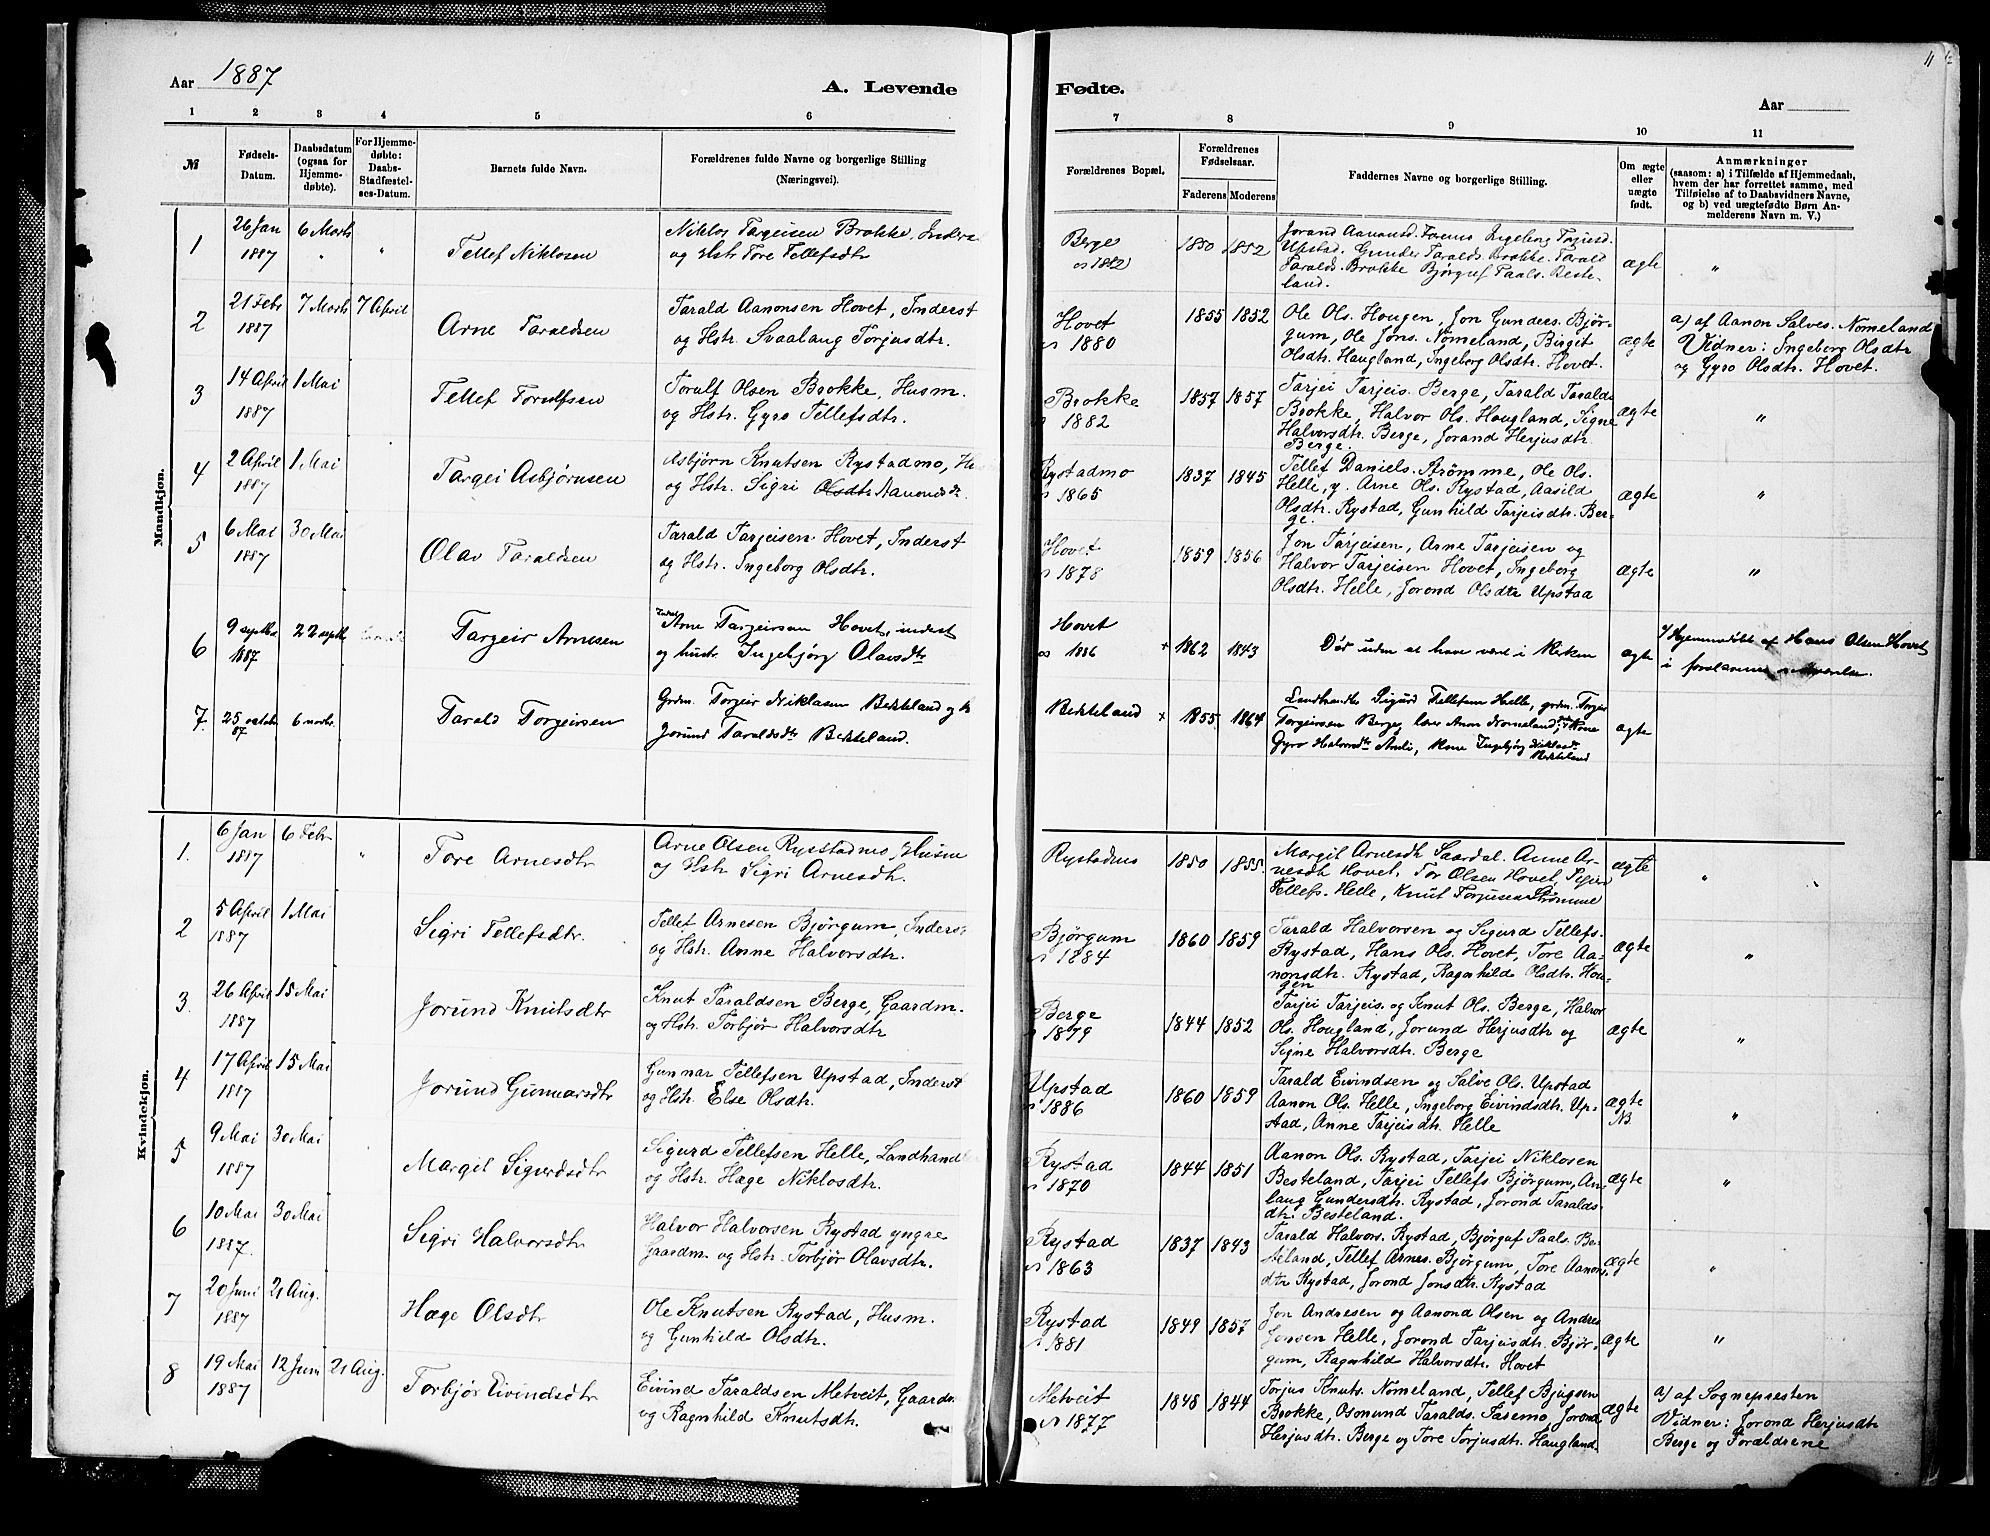 Aar 1887
A. Levende
Fødte.
Aar
11
1 2 3 4 5 6 7 8 9 10 11
№
Fødsels-
Datum.
Daabsdatum
(ogsaa for
Hjemme-
døbte).
For Hjemme-
døbte:
Daabs-
Stadfæstel-
ses-Datum.
Barnets fulde Navn.
Forældrenes fulde Navne og borgerlige Stilling
(Næringsvei).
Forældrenes Bopæl.
Forældrenes
Fødselsaar.
Faderens Moderens
Faddernes Navne og borgerlige Stilling.
Om ægte
eller
uægte
født.
Anmærkninger
(saasom: a) i Tilfælde af Hjemmedaab,
hvem der har forrettet samme, med
Tilføielse af to Daabsvidners Navne,
og b) ved uægtefødte Børn An-
melderens Navn m. V.)
Mandkjøn.
1
26 Jan
1887
6 Marts
"
"
Tellef Niklosen
Niklos Targeisen Brokke,
og Hstr Tore Tellefsdtr
Berge
1850 1852
Jorand Aanonsd. Ingeborg Torjusd.
Upstad. Gunder Taralds. Brokke. Tarald
Taralds. Brokke Bjørguf Paals. Beste-
land.
ægte
"
2
21 Febr
1887
7 Marts
7 April
Arne Taraldsen
Tarald Aanonsen Hovet, Inderst
og Hstr. Svaalaug Torjusdtr.
Hovet
1880
1855 1852
Ole Ols. Hougen, Jon Gunders. Bjør-
gum, Ole Jons. Nomeland, Birgit
Olsdtr. Haugland, Ingeborg Olsdtr. Hovet.
ægte
a) af Aanon Salves. Nomeland
Vidner: Ingeborg Olsdtr
og Gyro Olsdtr. Hovet.
3
14 April
1887
1 Mai
Tellef Torulfsen
Torulf Olsen Brokke, Husm.
og Hstr. Gyro Tellefsdtr.
Brokke
1882
1857 1857
Tarjei Tarjeis. Berge, Tarald Taralds
Brokke, Halvor Ols. Hougland, Signe
Halvorsdtr. Berge, Jorand Herjusdtr.
Berge.
ægte
"
4
2 April
1887
1 Mai
Targei Asbjørnsen
Asbjørn Knutsen Rystadmo,
og Hstr. Sigri Olsdtr Aanonsdtr.
Rystadmo
1865
1837 1845
Tellef Daniels. Strømme, Ole Ols.
Helle, y. Arne Ols. Rystad, Aasild
Olsdtr. Rystad, Gunhild Tarjeisdtr. Ber-
ge.
ægte
"
5
6 Mai
1887
30 Mai
Olav Taraldsen
Tarald Tarjeisen Hovet, Inderst
og Hstr. Ingeborg Olsdtr.
Hovet
1878
1859 1856
Jon Tarjeisen, Arne Tarjeisen og
Halvor Tarjeisen Hovet, Ingeborg
Olsdtr. Helle, Jorond Olsdtr Upstad
ægte
"
6
9 septbr
1887
22 septb
Targeir Arnesen
Arne Targeirsen Hovet, inderst
og hustr. Ingebjørg Olavsdtr
Hovet
1886
+ 1862 1843
Dør uden at have vært i Kirken
ægte
Hjemmedøbt af Hans Olsen Hovet
i
7.
25 octobr
87
6 novbr.
Tarald Torgeirsen
Grdm. Torgeir Niklasen Bekkeland og
Jorund Taraldsdtr Bekkeland.
Bekkeland
+ 1855 1864
Landhandler Sigurd Tellefsen Helle, grdm. Torgeir
Torgeirssen Berge, Nomeland, Kone
Gyro Halvorsdtr Kone Ingebjørg Niklasdtr
Bekkeland
ægte
Kvindekjøn.
1.
6 Jan
1887
6 Febr
"
Tore Arnesdtr
Arne Olsen Rysstadmo, Husm
og Hstr Sigri Arnesdtr.
Rystadmo
1850 1855.
Margit Arnesdtr Saardal. Anne Ar-
nesdtr Hovet, Tor Olsen Hovet,
Tellefs. Helle, Knut Torjusen Strømme
ægte
"
2
5 April
1887
1 Mai
Sigri Tellefsdtr.
Tellef Arnesen Bjørgum, Inderst
og Hstr. Anne Halvorsdtr.
Bjørgum
1884
1860 1859
Tarald Halvorsen og Sigurd Tellefs.
Rystad, Hans Ols. Hovet, Tore Aa-
nonsdtr. Rystad, Ragnhild Olsdtr. Hou-
gen
ægte
"
3
26 April
1887
15 Mai
Jorund Knutsdtr
Knut Taraldsen Berge, Gaardm.
og Hstr. Torbjør Halvorsdtr
Berge
1879
1844 1852
Tarjei Tarjeis. og Knut Ols. Berge, Halvor
Ols. Hougland, Jorund Herjusdtr og
Signe Halvorsdtr. Berge
ægte
"
4
17 April
1887
15 Mai
Jorund Gunnarsdtr
Gunnar Tellefsen Upstad, Inderst
og Hstr. Else Olsdtr.
Upstad
1886
1860 1859
Tarald Eivindsen og Salve Ols. Upstad
Aanon Ols. Helle, Ingeborg Eivindsdtr. Up-
stad, Anne Tarjeisdtr. Helle
ægte
N.B.
"
5
9 Mai
1887
30 Mai
Margit Sigurdsdtr
Sigurd Tellefsen Helle, Landhandl
og Hstr. Hæge Niklosdtr.
Rystad
1870
1844 1851
Aanon Ols. Rystad, Tarjei Niklosen
Besteland, Tarjei Tellefs. Bjørgum, An-
laug Gundersdtr. Rystad, Jorond Taralds-
dtr. Besteland.
ægte
"
6
10 Mai
1887.
30 Mai
Sigri Halvorsdtr
Halvor Halvorsen Rystad yngre
Gaardm. og Hstr. Torbjør Olavsdtr.
Rystad
1863
1837 1843
Tarald Halvors. Rystad, Bjørguf Paals. Be-
steland, Tellef Arnes. Bjørgum, Tore Aanons-
dtr Rystad, Jorond Jonsdtr. Rystad
ægte
"
7
20 Juni
1887
21 Aug.
Hæge Olsdtr
Ole Knutsen Rystad, Husm.
og Gunhild Olsdtr.
Rystad
1881
1849 1857
Jon Andresen og Aanond Olsen og Andres
Jonsen Helle, Jorond Tarjeisdtr. Bjør-
gum, Ragnhild Halvorsdtr. Hovet
ægte
"
8
19 Mai
1887
12 Juni
21 Aug.
Torbjør Eivindsdtr
Eivind Taraldsen Metveit, Gaardm.
og Ragnhild Knutsdtr.
Metveit
1877
1848 1844
Torjus Knuts. Nomeland, Tellef Bjugsen
Brokke, Osmund Taralds. Jorond
Herjusdtr. Berge og Tore Torjusdtr. Haugland.
ægte
a) af Sognepresten
Vidner: Jorond Herjusdtr
Berge og Forældrene